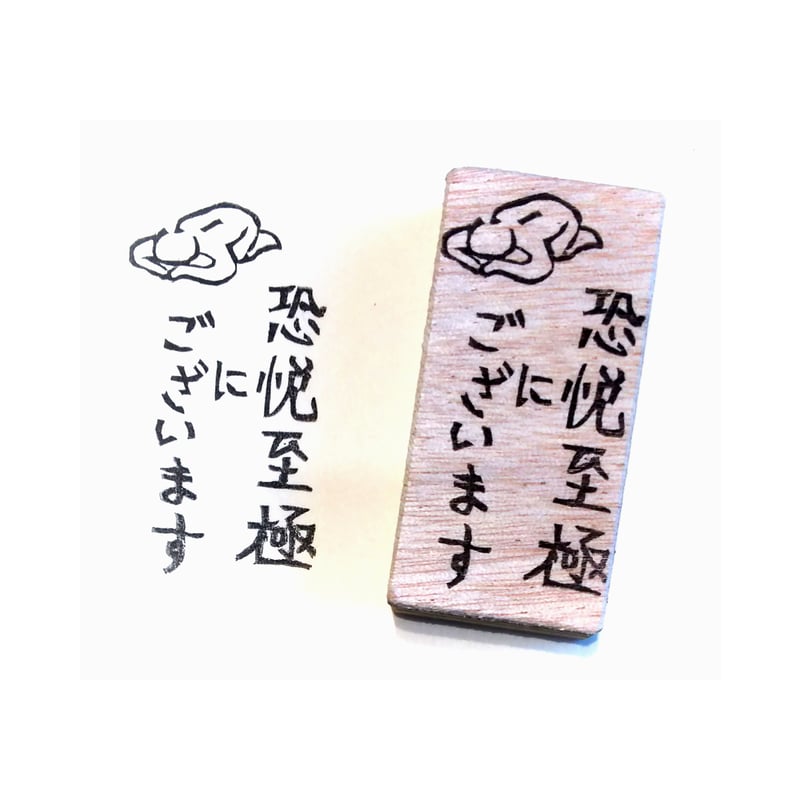 恐悦至極
に
ございます
恐悦至極
に
ございます